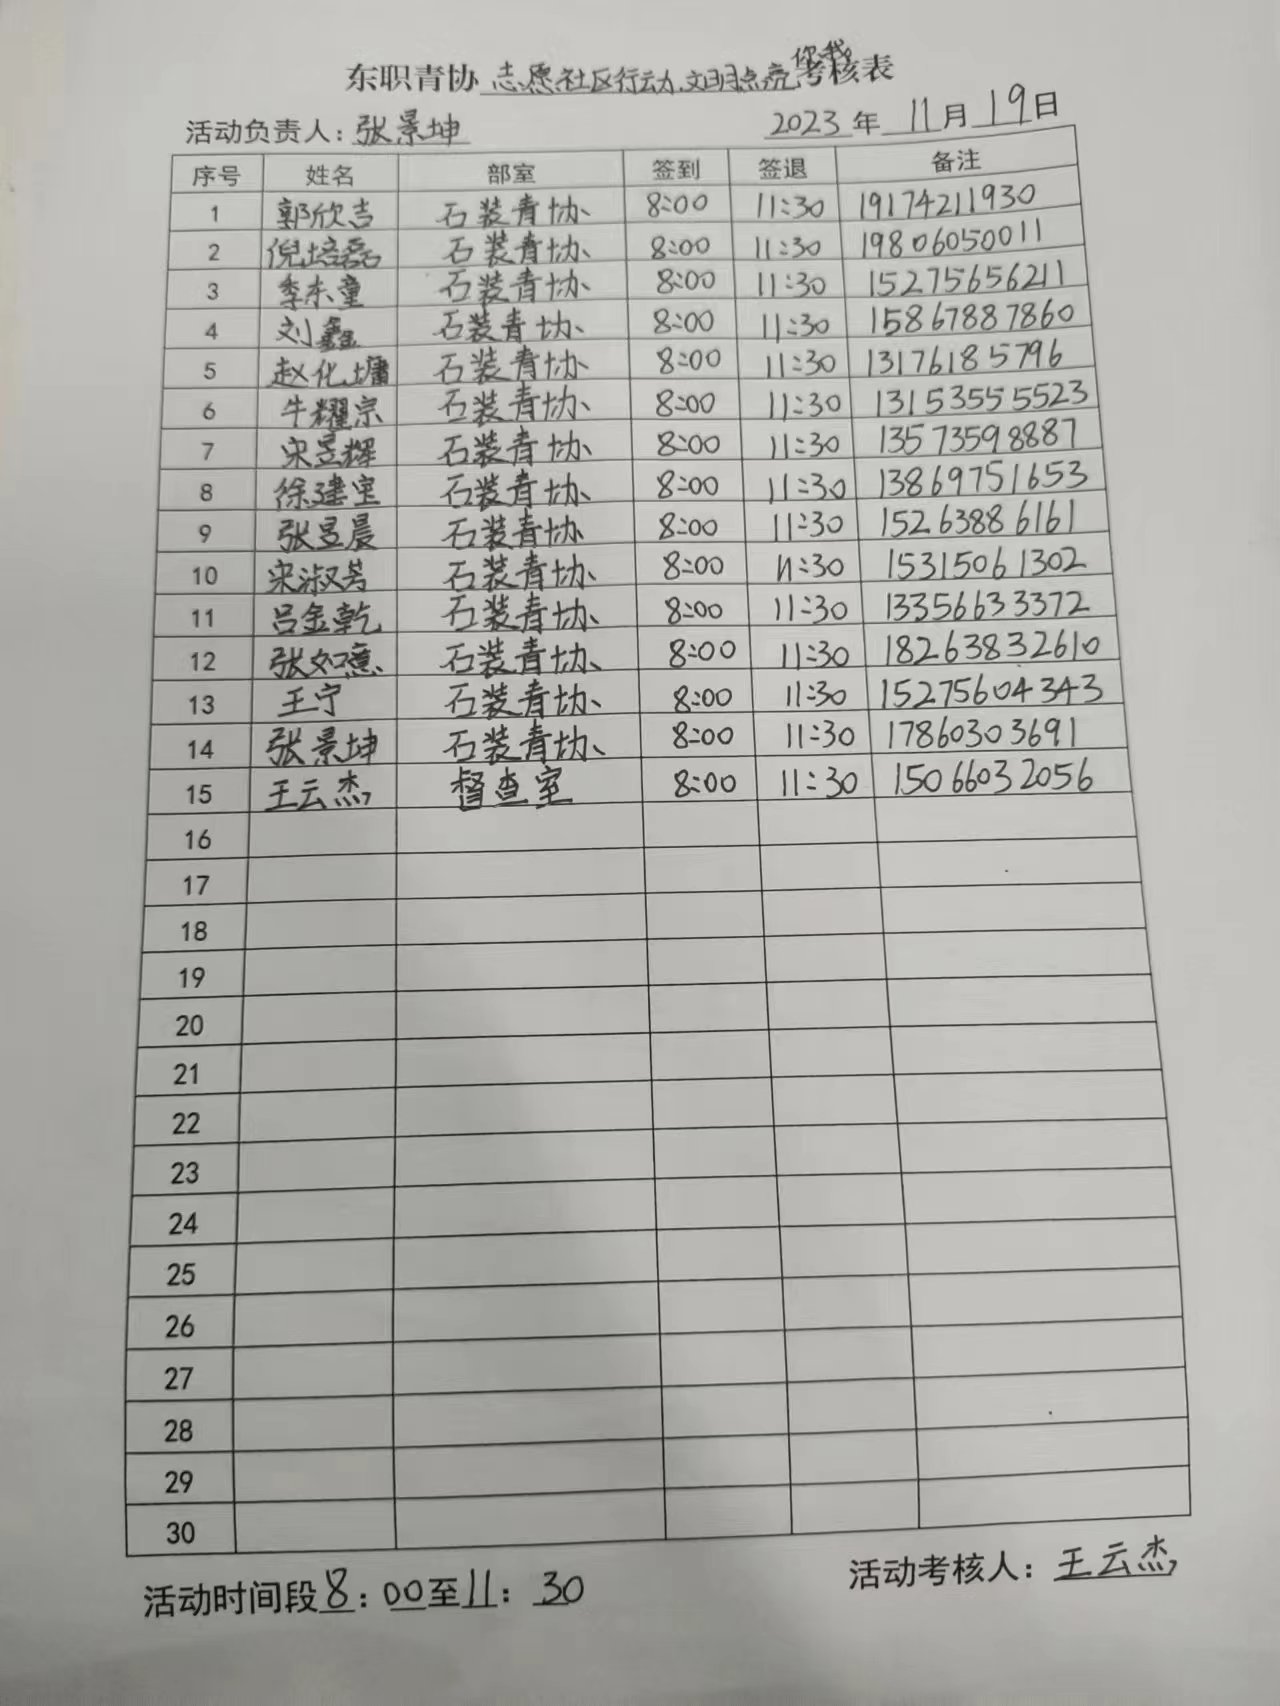 东职青协 志愿社区行动,文明点亮你我 考核表
活动负责人：张景坤 2023年11月19日
序号 姓名 部室 签到 签退 备注
1 郭欣吉 石装青协 8:00 11:30 19174211930
2 倪培磊 石装青协 8:00 11:30 19806050011
3 季东童 石装青协 8:00 11:30 15275656211
4 刘鑫 石装青协 8:00 11:30 15867887860
5 赵化墉 石装青协 8:00 11:30 13176185796
6 牛耀宗 石装青协 8:00 11:30 13153555523
7 宋昱辉 石装青协 8:00 11:30 13573598887
8 徐建室 石装青协 8:00 11:30 13869751653
9 张昱晨 石装青协 8:00 11:30 15263886161
10 宋淑芳 石装青协 8:00 11:30 15315061302
11 吕金乾 石装青协 8:00 11:30 13356633372
12 张如意 石装青协 8:00 11:30 18263832610
13 王宁 石装青协 8:00 11:30 15275604343
14 张景坤 石装青协 8:00 11:30 17860303691
15 王云杰 督查室 8:00 11:30 15066032056
16
17
18
19
20
21
22
23
24
25
26
27
28
29
30
活动时间段8：00至11：30 活动考核人：王云杰